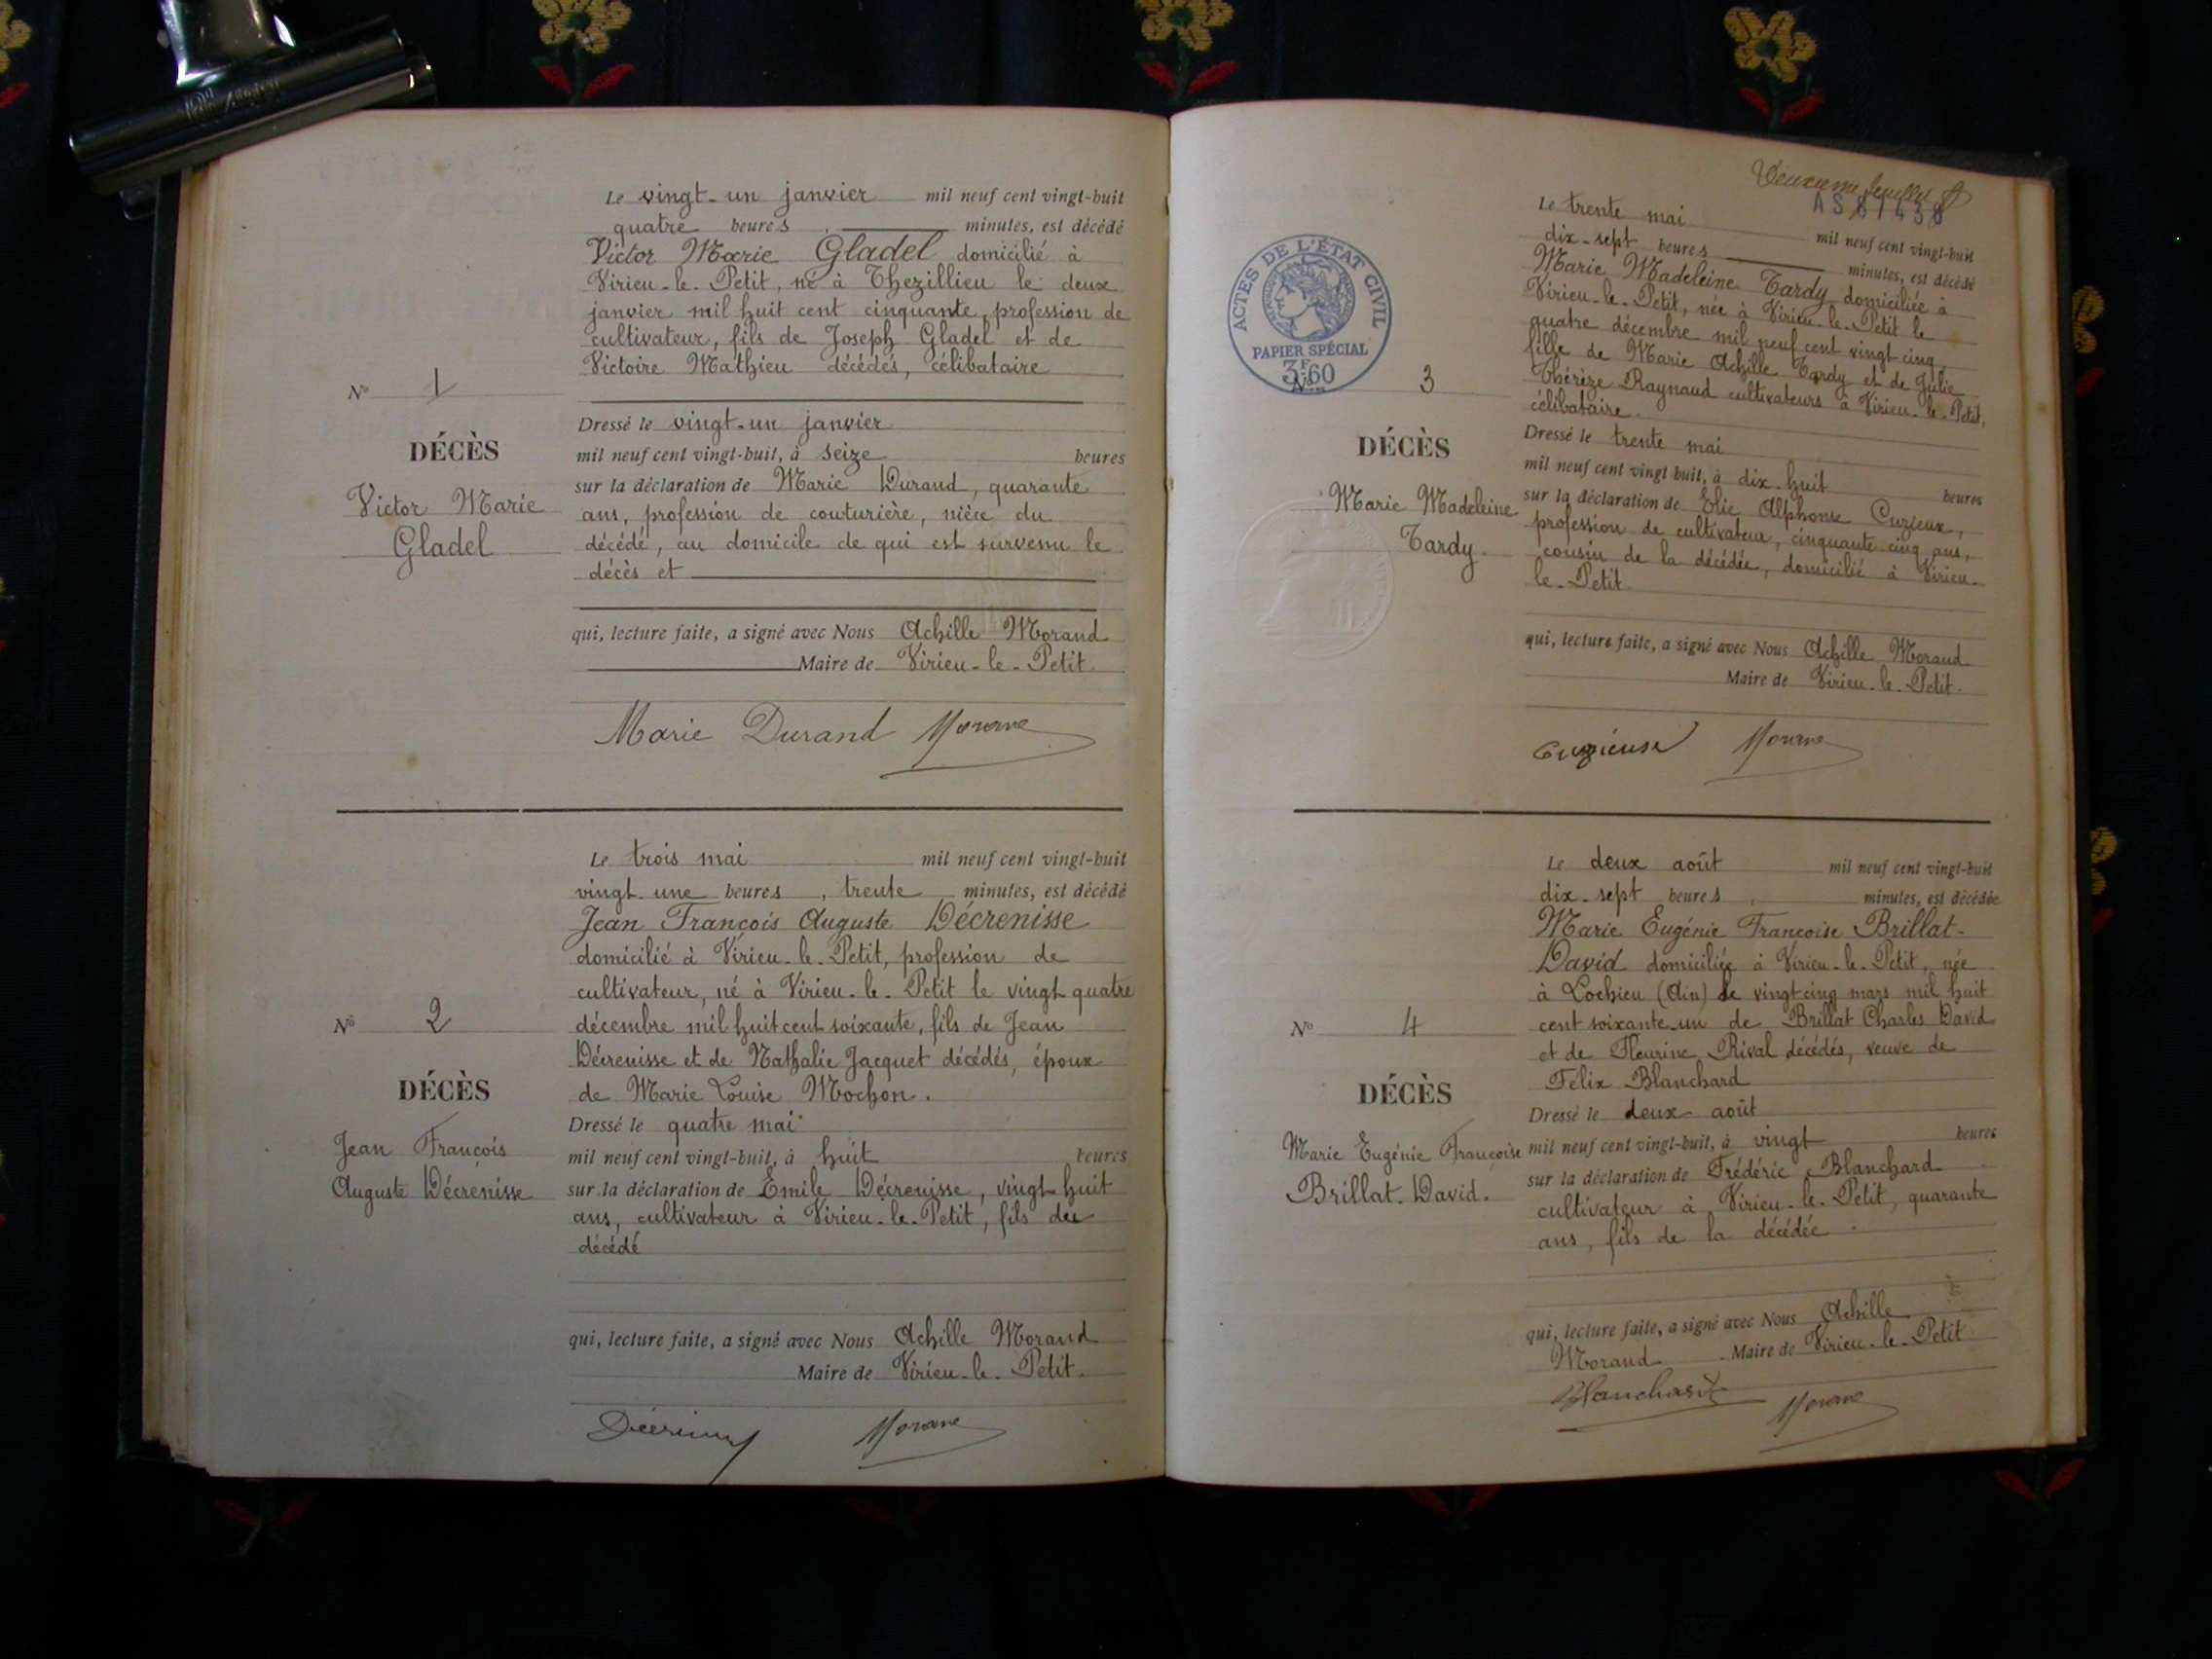 Le vingt-un janvier mil neuf cent vingt-huit
quatre heures, minutes, est décédé
Victor Marie Gladel domicilié à
Virieu-le-Petit, né à Thezillieu le deux
janvier mil huit cent cinquante, profession de
cultivateur, fils de Joseph Gladel et de
Victoire Mathieu décédés, célibataire
N° 1
DÉCÈS
Victor Marie
Gladel
Dressé le vingt-un janvier
mil neuf cent vingt-huit, à seize heures
sur la déclaration de Marie Durand, quarante
ans, profession de couturière, nièce du
décédé, au domicile de qui est survenu le
décès et
qui, lecture faite, a signé avec Nous Achille Morand
Maire de Virieu-le-Petit.
Marie Durand
Le trois mai mil neuf cent vingt-huit
vingt une heures, trente minutes, est décédé
Jean François Auguste Décrenisse
domicilié à Virieu-le-Petit, profession de
cultivateur, né à Virieu-le-Petit le vingt quatre
décembre mil huit cent soixante, fils de Jean
Décrenisse et de Nathalie Jacquet décédés, époux
de Marie Louise Mochon.
N° 2
DÉCÈS
Jean François
Auguste Décrenisse
Dressé le quatre mai
mil neuf cent vingt-huit, à huit heures
sur la déclaration de Emile Décrenisse, vingt-huit
ans, cultivateur à Virieu-le-Petit, fils du
décédé
qui, lecture faite, a signé avec Nous Achille Morand
Maire de Virieu-le-Petit.
Deuxième feuillet
ACTES DE L'ÉTAT CIVIL
PAPIER SPÉCIAL
3F.60
Le trente mai mil neuf cent vingt-huit
dix-sept heures minutes, est décédé
Marie Madeleine Tardy domiciliée à
Virieu-le-Petit, née à Virieu-le-Petit le
quatre décembre mil neuf cent vingt cinq,
fille de Marie Achille Tardy et de Julie
Thérèze Raynaud cultivateurs à Virieu-le-Petit,
célibataire.
N° 3
DÉCÈS
Marie Madeleine
Tardy.
Dressé le trente mai
mil neuf cent vingt-huit, à dix-huit heures
sur la déclaration de Elie Alphonse Cuzieux,
profession de cultivateur, cinquante cinq ans,
cousin de la décédée, domicilié à Virieu-
le-Petit
qui, lecture faite, a signé avec Nous Achille Morand
Maire de Virieu-le-Petit.
Le deux août mil neuf cent vingt-huit
dix-sept heures, minutes, est décédée
Marie Eugénie Françoise Brillat-
David domiciliée à Virieu-le-Petit, née
à Lochieu (Ain) le vingt-cinq mars mil huit
cent soixante-un de Brillat Charles David
et de Fleurine Rival décédés, veuve de
Félix Blanchard
N° 4
DÉCÈS
Marie Eugénie Françoise
Brillat-David.
Dressé le deux août
mil neuf cent vingt-huit, à vingt heures
sur la déclaration de Frédéric Blanchard
cultivateur à Virieu-le-Petit, quarante
ans, fils de la décédée.
qui, lecture faite, a signé avec Nous Achille
Morand. Maire de Virieu-le-Petit
Blanchard